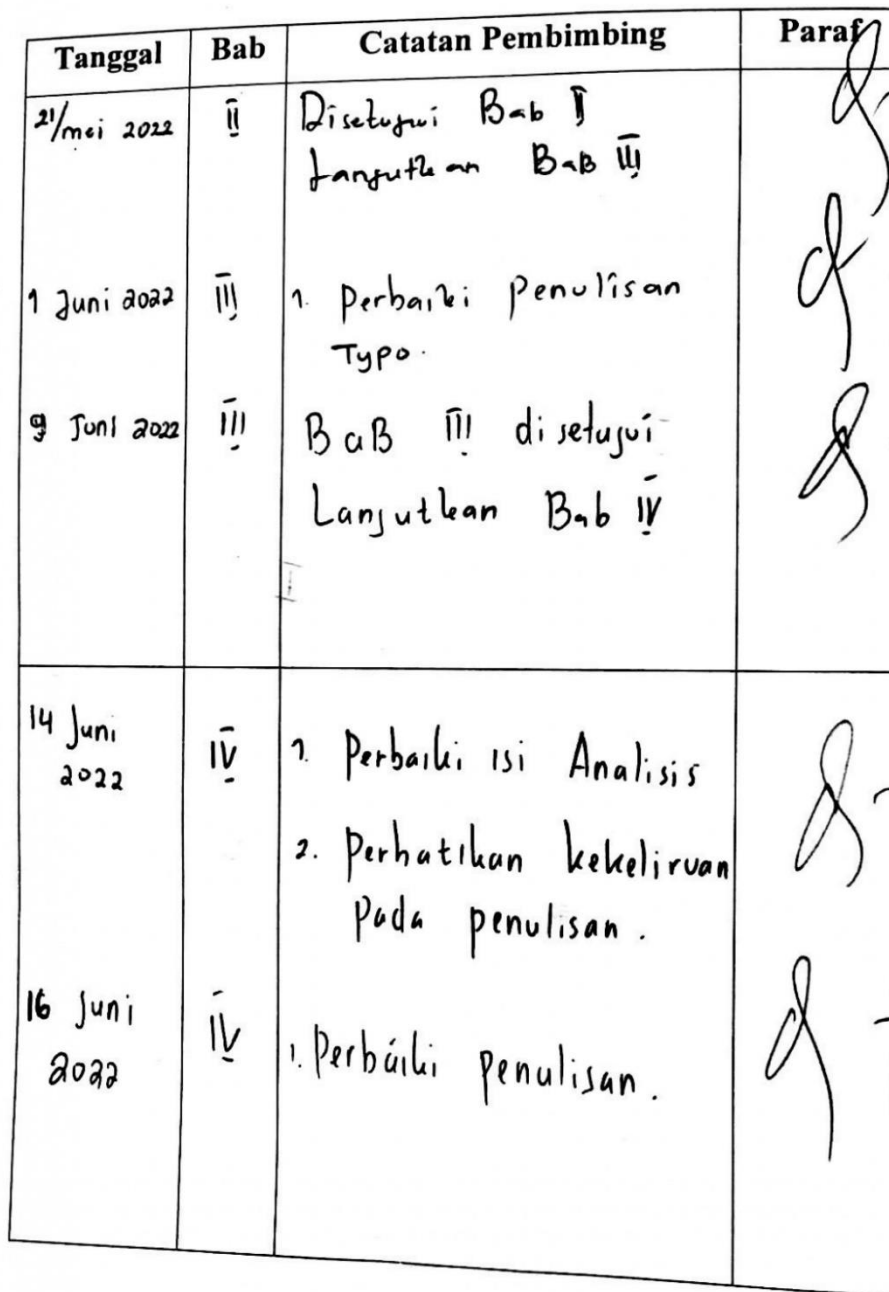 Tanggal Bab Catatan Pembimbing Paraf
21/mei 2022 II Disetujui Bab II
Lanjutkan BaB III
1 Juni 2022 III 1. Perbaiki penulisan
Typo.
9 Juni 2022 III BaB III disetujui
Lanjutkan Bab IV
14 Juni
2022 IV 1. Perbaiki isi Analisis
2. Perhatikan kekeliruan
pada penulisan.
16 Juni
2022 IV 1. Perbaiki penulisan.